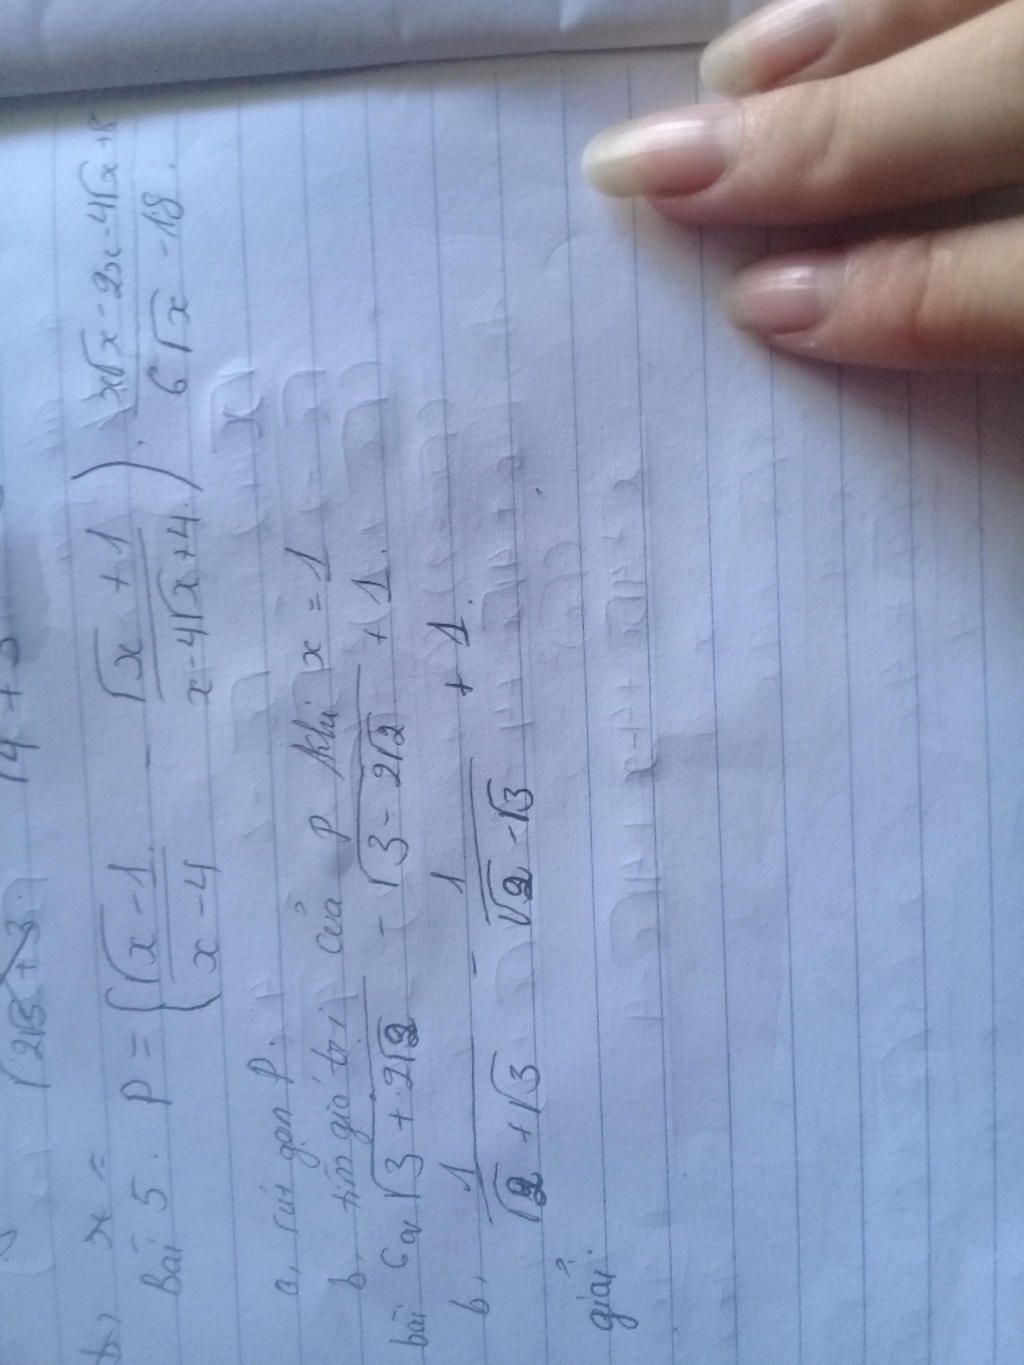 √2√3 + 3.
b, x =
Bài 5. P = (√x - 1 / x - 4 - √x + 1 / x - 4√x + 4) . x√x - 2x - 4√x + 8 / 6√x - 18.
a, rút gọn P.
b, tìm giá trị của P khi x = 1
bài 6a, √3 + 2√2 - √3 - 2√2 + 1.
b, 1 / √2 + √3 - 1 / √2 - √3 + 1.
giải.